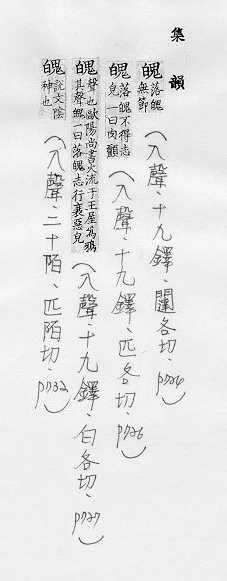 集韻
魄落魄無節(入聲、十九鐸、闥各切、P726)
魄落魄不得志皃一曰肉顫(入聲、十九鐸、匹各切、P726)
魄聲也歐陽尚書火流于王屋為鵶其聲魄一曰落魄志行衰惡皃(入聲、十九鐸、白各切、P727)
魄說文陰神也(入聲、二十陌、匹陌切、P732)